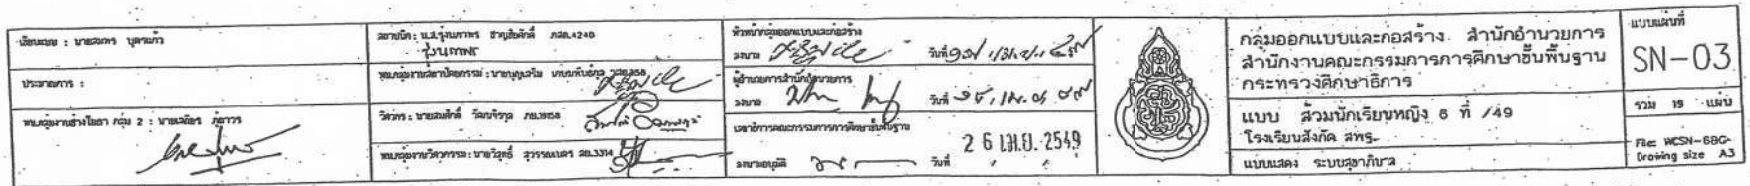 เขียนแบบ : นายสถาพร บุตรแก้ว
ประมาณการ :
หน.กลุ่มงานช่างโยธา กลุ่ม 2 : นายเสถียร
สถาปนิก : น.ส.รุ่งนภาพร ภสถ.4240
รุ่งนภาพร
หน.กลุ่มงานสถาปัตยกรรม : นายบุญเสริม
วิศวกร : นายสมศักดิ์ วัฒนจิรกุล ภย.19158
หน.กลุ่มงานวิศวกรรม : นายวิสุทธิ์ สุวรรณเนตร สย.3314
หัวหน้ากลุ่มออกแบบและก่อสร้าง
ลงนาม วันที่
ผู้อำนวยการสำนักอำนวยการ
ลงนาม วันที่
เลขาธิการคณะกรรมการการศึกษาขั้นพื้นฐาน
26 เม.ย. 2549
ลงนามอนุมัติ วันที่
กลุ่มออกแบบและก่อสร้าง สำนักอำนวยการ
สำนักงานคณะกรรมการการศึกษาขั้นพื้นฐาน
กระทรวงศึกษาธิการ
แบบ ส้วมนักเรียนหญิง 6 ที่ /49
โรงเรียนสังกัด สพฐ.
แบบแสดง ระบบสุขาภิบาล
แบบแผ่นที่
SN-03
รวม 19 แผ่น
File: WCSN-6BG-
Drawing size A3